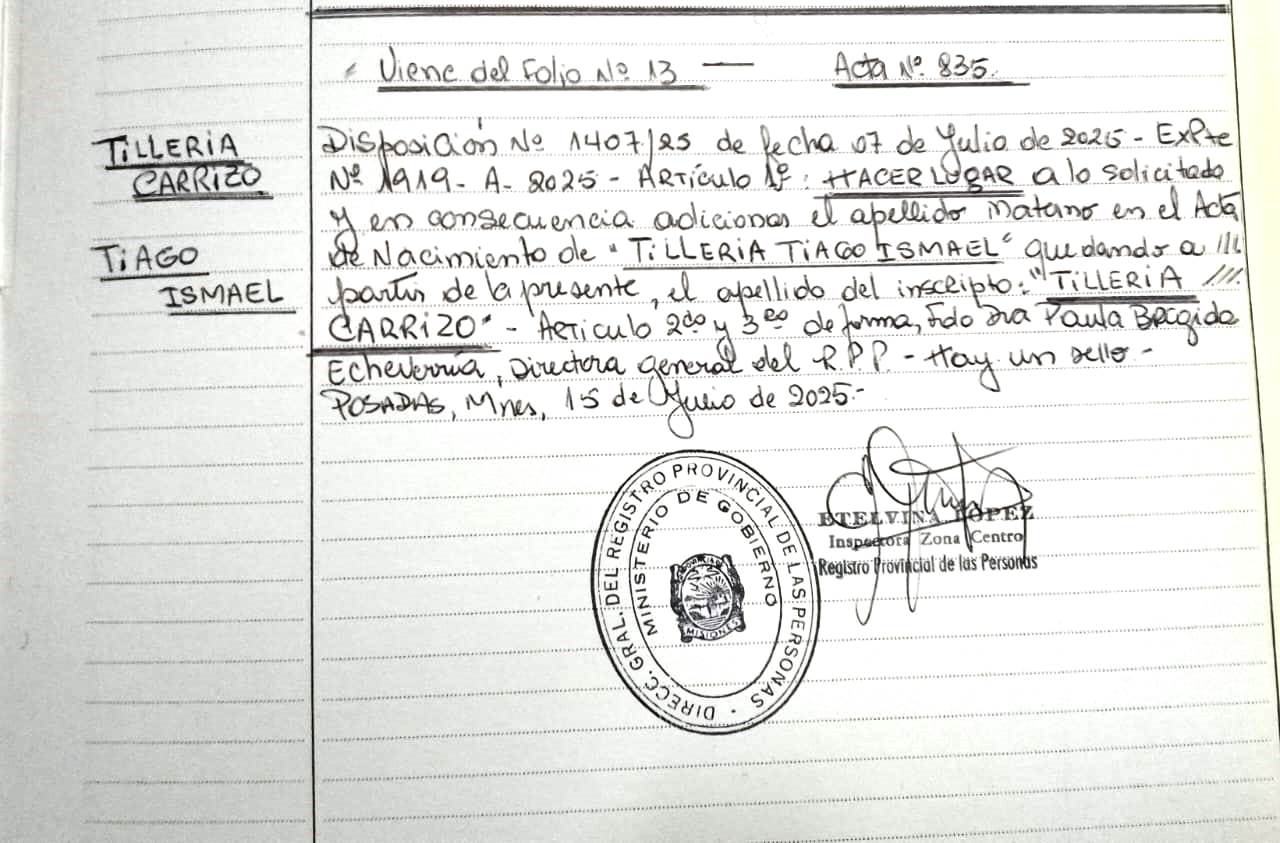 Viene del Folio Nº 13 — Acta Nº 835.
TILLERIA
CARRIZO
TIAGO
ISMAEL
Disposición Nº 1407/25 de fecha 07 de Julio de 2025 - ExPte
Nº 1919 - A - 2025 - ARTÍCULO 1º: HACER LUGAR a lo solicitado
y en consecuencia adicionar el apellido Materno en el Acta
de Nacimiento de "TILLERIA TIAGO ISMAEL" quedando a ///
partir de la presente, el apellido del inscripto: "TILLERIA ///.
CARRIZO" - Articulo 2do y 3ro de forma, Fdo Dra Paula Brigida
Echeverría, Directora general del R.P.P - Hay un sello -
POSADAS, Mnes, 15 de Julio de 2025.-
DIRECC. GRAL. DEL REGISTRO PROVINCIAL DE LAS PERSONAS
MINISTERIO DE GOBIERNO
PROVINCIA DE
MISIONES
ETELVINA LOPEZ
Inspectora Zona Centro
Registro Provincial de las Personas